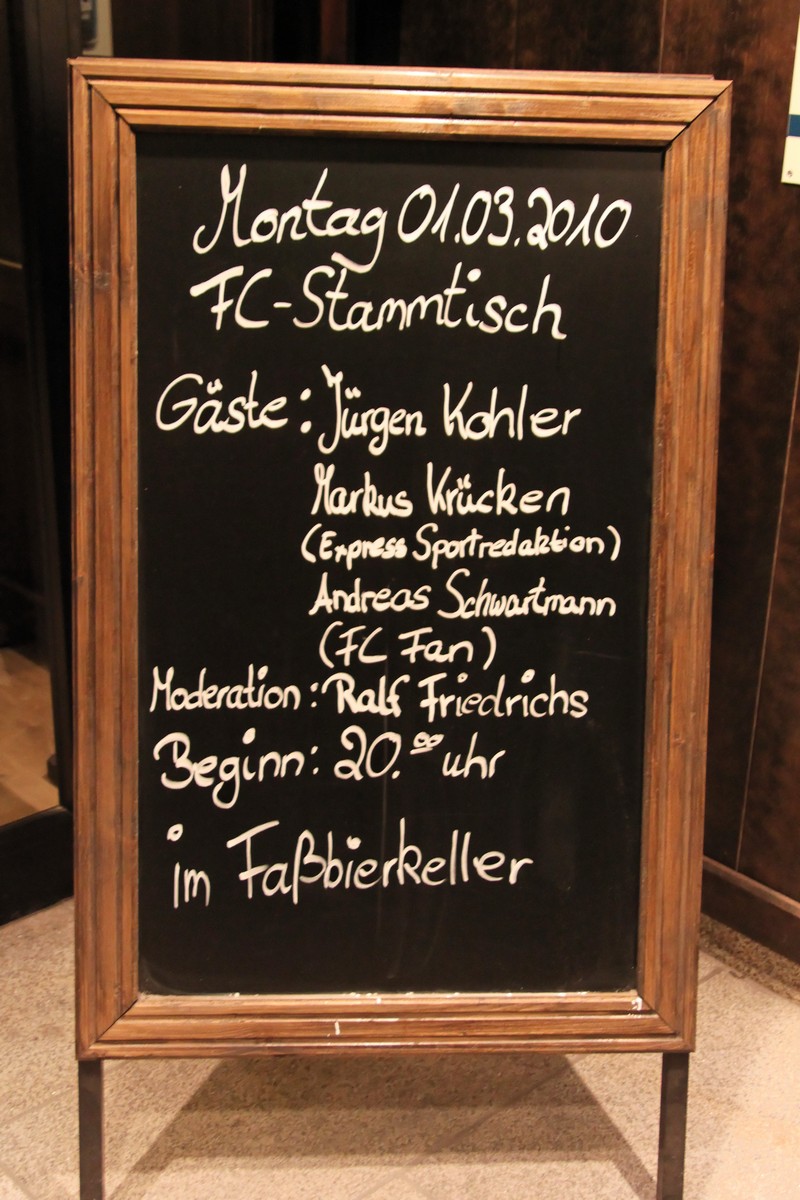 Montag 01.03.2010
FC-Stammtisch
Gäste: Jürgen Kohler
Markus Krücken
(Express Sportredaktion)
Andreas Schwartmann
(FC Fan)
Moderation: Ralf Friedrichs
Beginn: 20.00 uhr
im Faßbierkeller